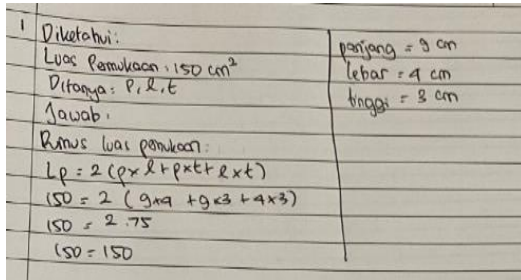 1 Diketahui:
Luas Pemukaan: 150 cm²
Ditanya: P, l, t
Jawab:
Rumus luas pemukaan:
Lp = 2 (p x l + p x t + l x t)
150 = 2 ( 9x4 + 9x3 + 4x3)
150 = 2.75
150 = 150
panjang = 9 cm
lebar = 4 cm
tinggi = 3 cm